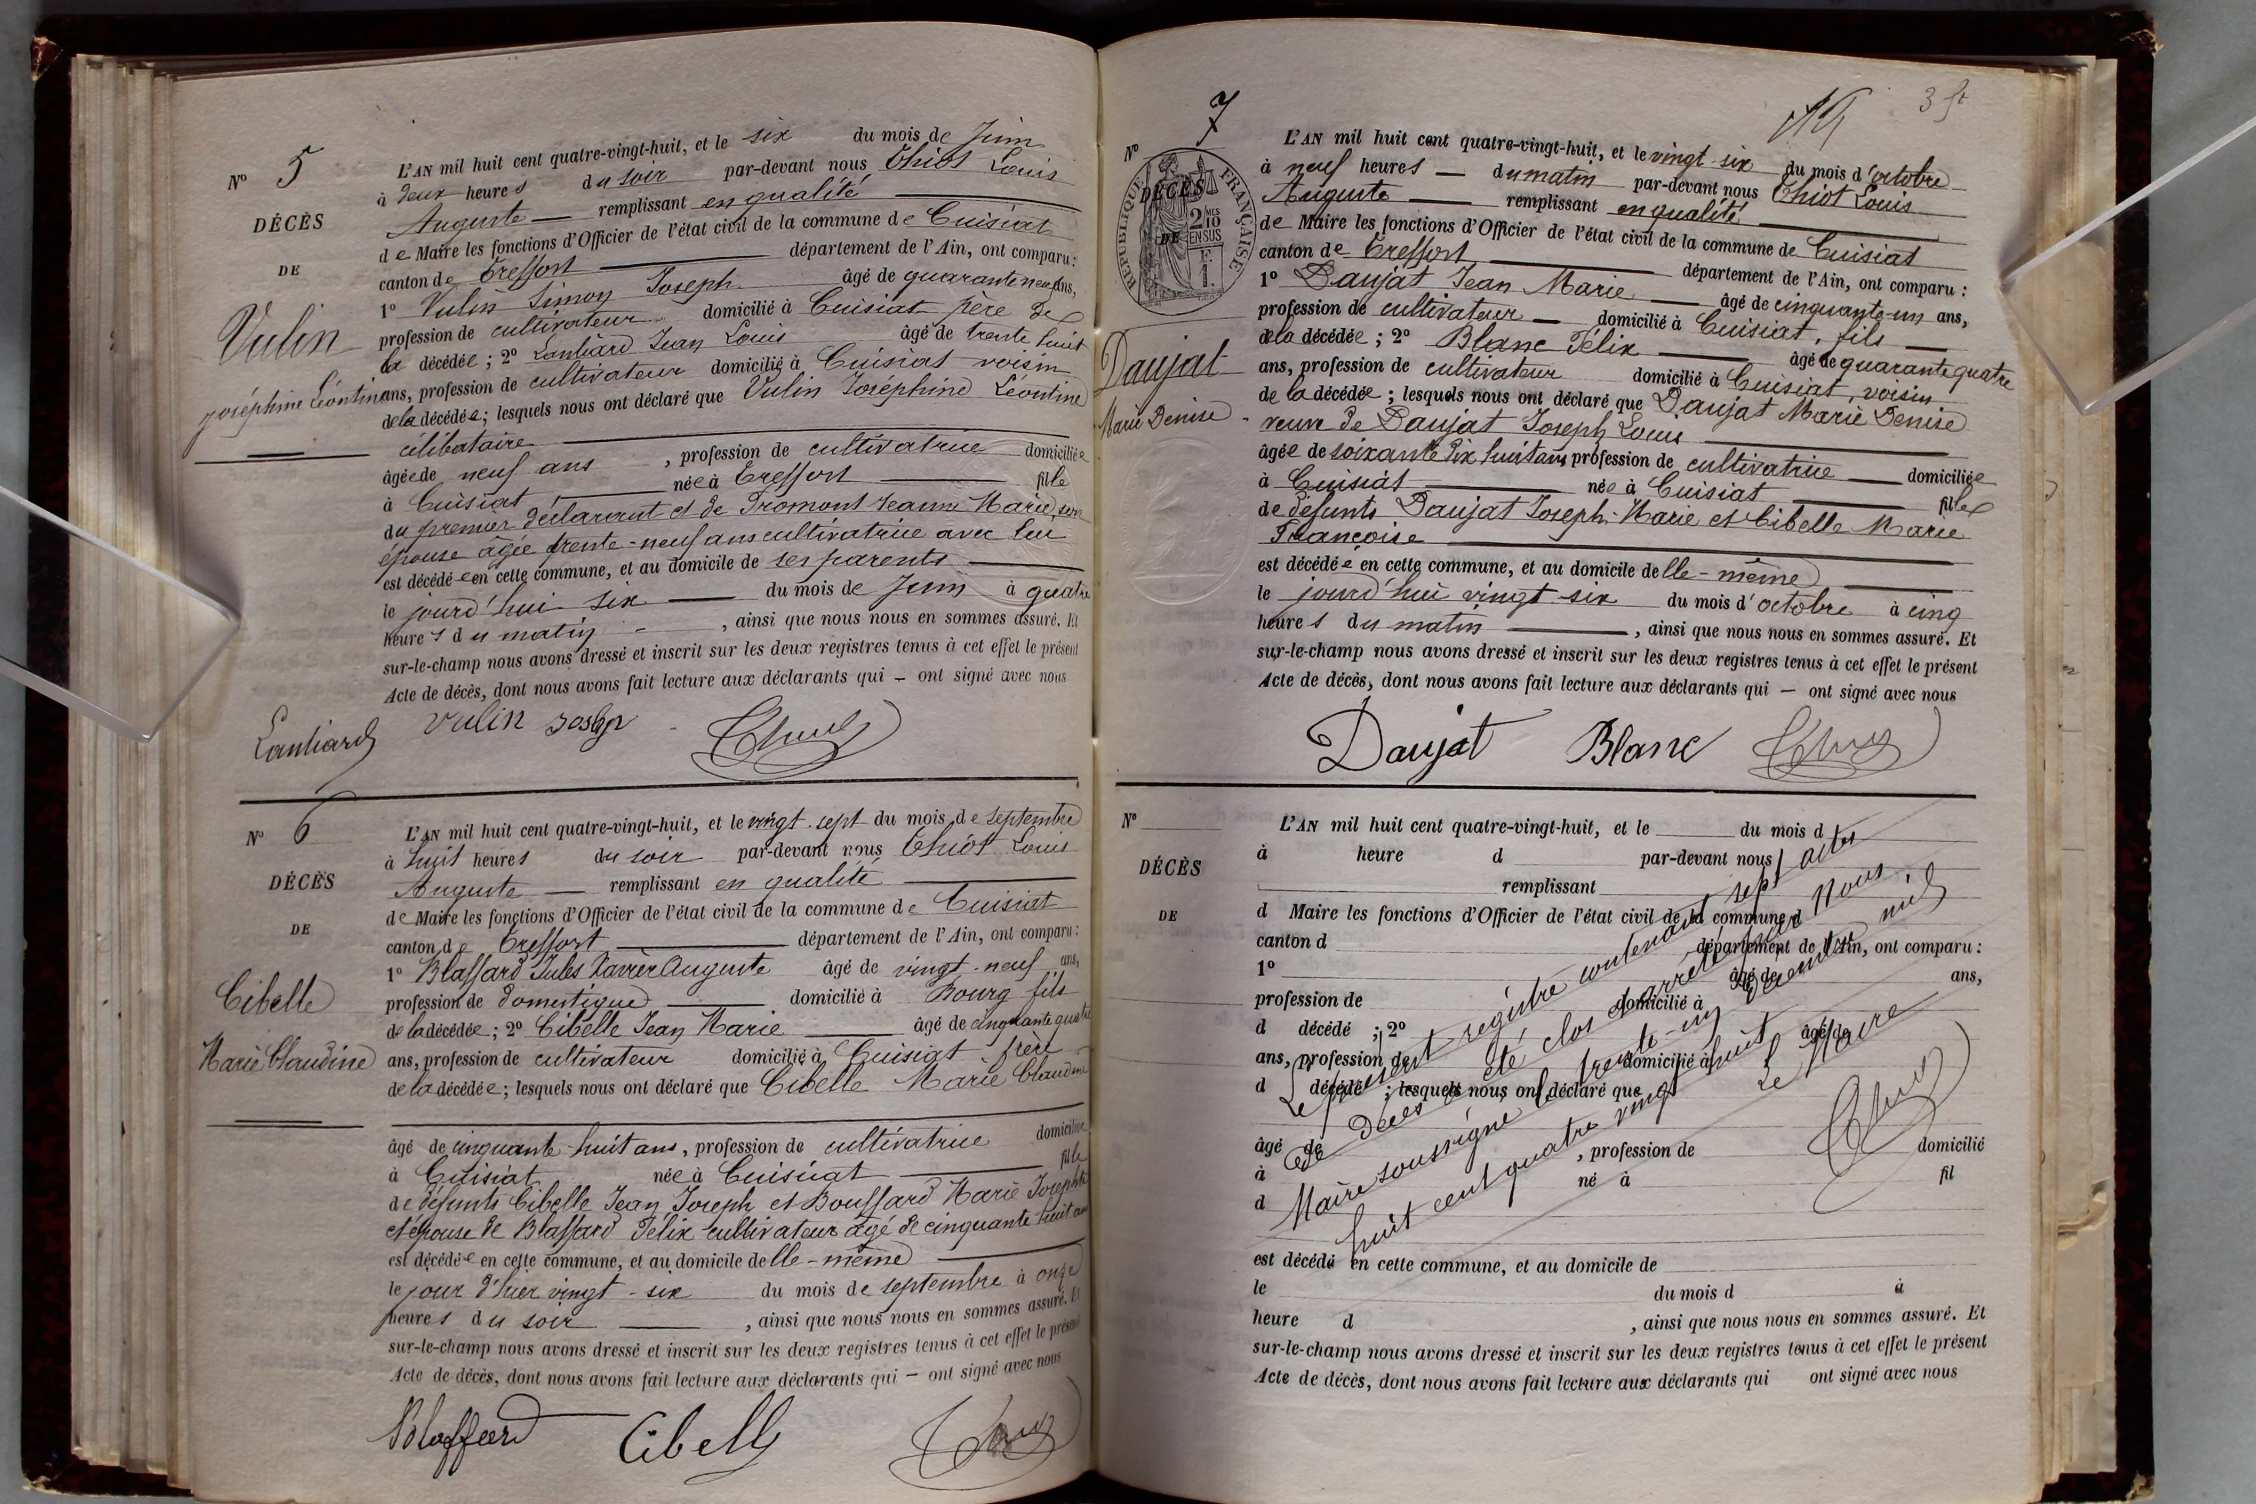 N° 5
DÉCÈS
DE
Vulin
Joséphine Léontine
L'AN mil huit cent quatre-vingt-huit, et le six du mois de Juin
à deux heures du soir par-devant nous Thiot Louis
Auguste — remplissant en qualité
de Maire les fonctions d'Officier de l'état civil de la commune de Cuisiat
canton de Treffort département de l'Ain, ont comparu :
1° Vulin Simon Joseph âgé de quarante neuf ans,
profession de cultivateur domicilié à Cuisiat père de
la décédée ; 2° Lanliard Jean Louis âgé de trente huit
ans, profession de cultivateur domicilié à Cuisiat voisin
de la décédée ; lesquels nous ont déclaré que Vulin Joséphine Léontine
célibataire
âgée de neuf ans , profession de cultivatrice domiciliée
à Cuisiat née à Treffort fille
du premier déclarant et de Promont Jeanne Marie, son
épouse âgée trente-neuf ans cultivatrice avec lui
est décédée en cette commune, et au domicile de ses parents
le jourd'hui six du mois de Juin à quatre
heures du matin , ainsi que nous nous en sommes assuré. Et
sur-le-champ nous avons dressé et inscrit sur les deux registres tenus à cet effet le présent
Acte de décès, dont nous avons fait lecture aux déclarants qui — ont signé avec nous
Lanliard Vulin Joseph
N° 6
DÉCÈS
DE
Cibelle
Marie Claudine
L'AN mil huit cent quatre-vingt-huit, et le vingt-sept du mois de septembre
à huit heures du soir par-devant nous Thiot Louis
Auguste — remplissant en qualité
de Maire les fonctions d'Officier de l'état civil de la commune de Cuisiat
canton de Treffort département de l'Ain, ont comparu :
1° Blaffard Jules Xavier Auguste âgé de vingt-neuf ans,
profession de domestique domicilié à Bourg fils
de la décédée ; 2° Cibelle Jean Marie âgé de cinquante quatre
ans, profession de cultivateur domicilié à Cuisiat frère
de la décédée ; lesquels nous ont déclaré que Cibelle Marie Claudine
âgé de cinquante-huit ans, profession de cultivatrice domiciliée
à Cuisiat née à Cuisiat fille
de défunts Cibelle Jean Joseph et Bouffard Marie Josephte
et épouse de Blaffard Félix cultivateur âgé de cinquante huit ans
est décédée en cette commune, et au domicile d elle-même
le jour d'hier vingt-six du mois de septembre à onze
heures du soir , ainsi que nous nous en sommes assuré. Et
sur-le-champ nous avons dressé et inscrit sur les deux registres tenus à cet effet le présent
Acte de décès, dont nous avons fait lecture aux déclarants qui — ont signé avec nous
Blaffard Cibelle
3 ft
N° 7
RÉPUBLIQUE FRANÇAISE
2 MES 10 EN SUS
DÉCÈS
DE
Daujat
Marie Denise
L'AN mil huit cent quatre-vingt-huit, et le vingt-six du mois d'octobre
à neuf heures — du matin par-devant nous Thiot Louis
Auguste — remplissant en qualité
de Maire les fonctions d'Officier de l'état civil de la commune de Cuisiat
canton de Treffort département de l'Ain, ont comparu :
1° Daujat Jean Marie — âgé de cinquante-un ans,
profession de cultivateur — domicilié à Cuisiat, fils —
de la décédée ; 2° Blanc Félix — âgé de quarante quatre
ans, profession de cultivateur domicilié à Cuisiat, voisin
de la décédée ; lesquels nous ont déclaré que Daujat Marie Denise
veuve de Daujat Joseph Louis
âgée de soixante dix huit ans, profession de cultivatrice — domiciliée
à Cuisiat née à Cuisiat fille
de défunts Daujat Joseph-Marie et Cibelle Marie
Françoise
est décédée en cette commune, et au domicile d elle-même
le jourd'hui vingt-six du mois d'octobre à cinq
heures du matin , ainsi que nous nous en sommes assuré. Et
sur-le-champ nous avons dressé et inscrit sur les deux registres tenus à cet effet le présent
Acte de décès, dont nous avons fait lecture aux déclarants qui — ont signé avec nous
Daujat Blanc
N°
DÉCÈS
DE
L'AN mil huit cent quatre-vingt-huit, et le du mois d
à heure d par-devant nous
remplissant
d Maire les fonctions d'Officier de l'état civil de la commune d
canton d département de l'Ain, ont comparu :
1° âgé de ans,
profession de domicilié à
d décédé ; 2° âgé de
ans, profession de domicilié à
d décédé ; lesquels nous ont déclaré que
âgé de , profession de domicilié
à né à fil
d
est décédé en cette commune, et au domicile de
le du mois d à
heure d , ainsi que nous nous en sommes assuré. Et
sur-le-champ nous avons dressé et inscrit sur les deux registres tenus à cet effet le présent
Acte de décès, dont nous avons fait lecture aux déclarants qui ont signé avec nous
Le présent registre contenant sept actes
de décès a été clos et arrêté par nous,
Maire soussigné le trente-un décembre mil
huit cent quatre vingt huit
Le Maire